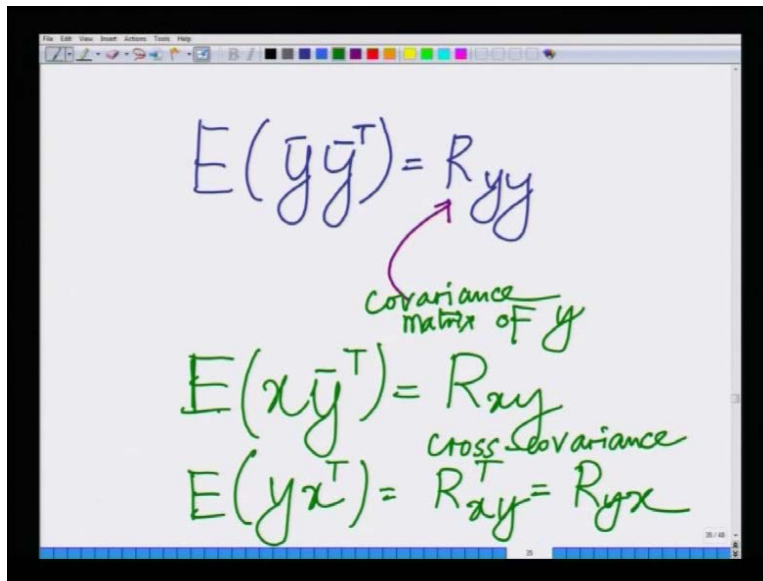 File Edit View Insert Actions Tools Help
B I
E(ȳȳᵀ) = R_yy
covariance
matrix of y
E(xȳᵀ) = R_xy
cross-covariance
E(yxᵀ) = Rᵀ_xy = R_yx
35/48
35